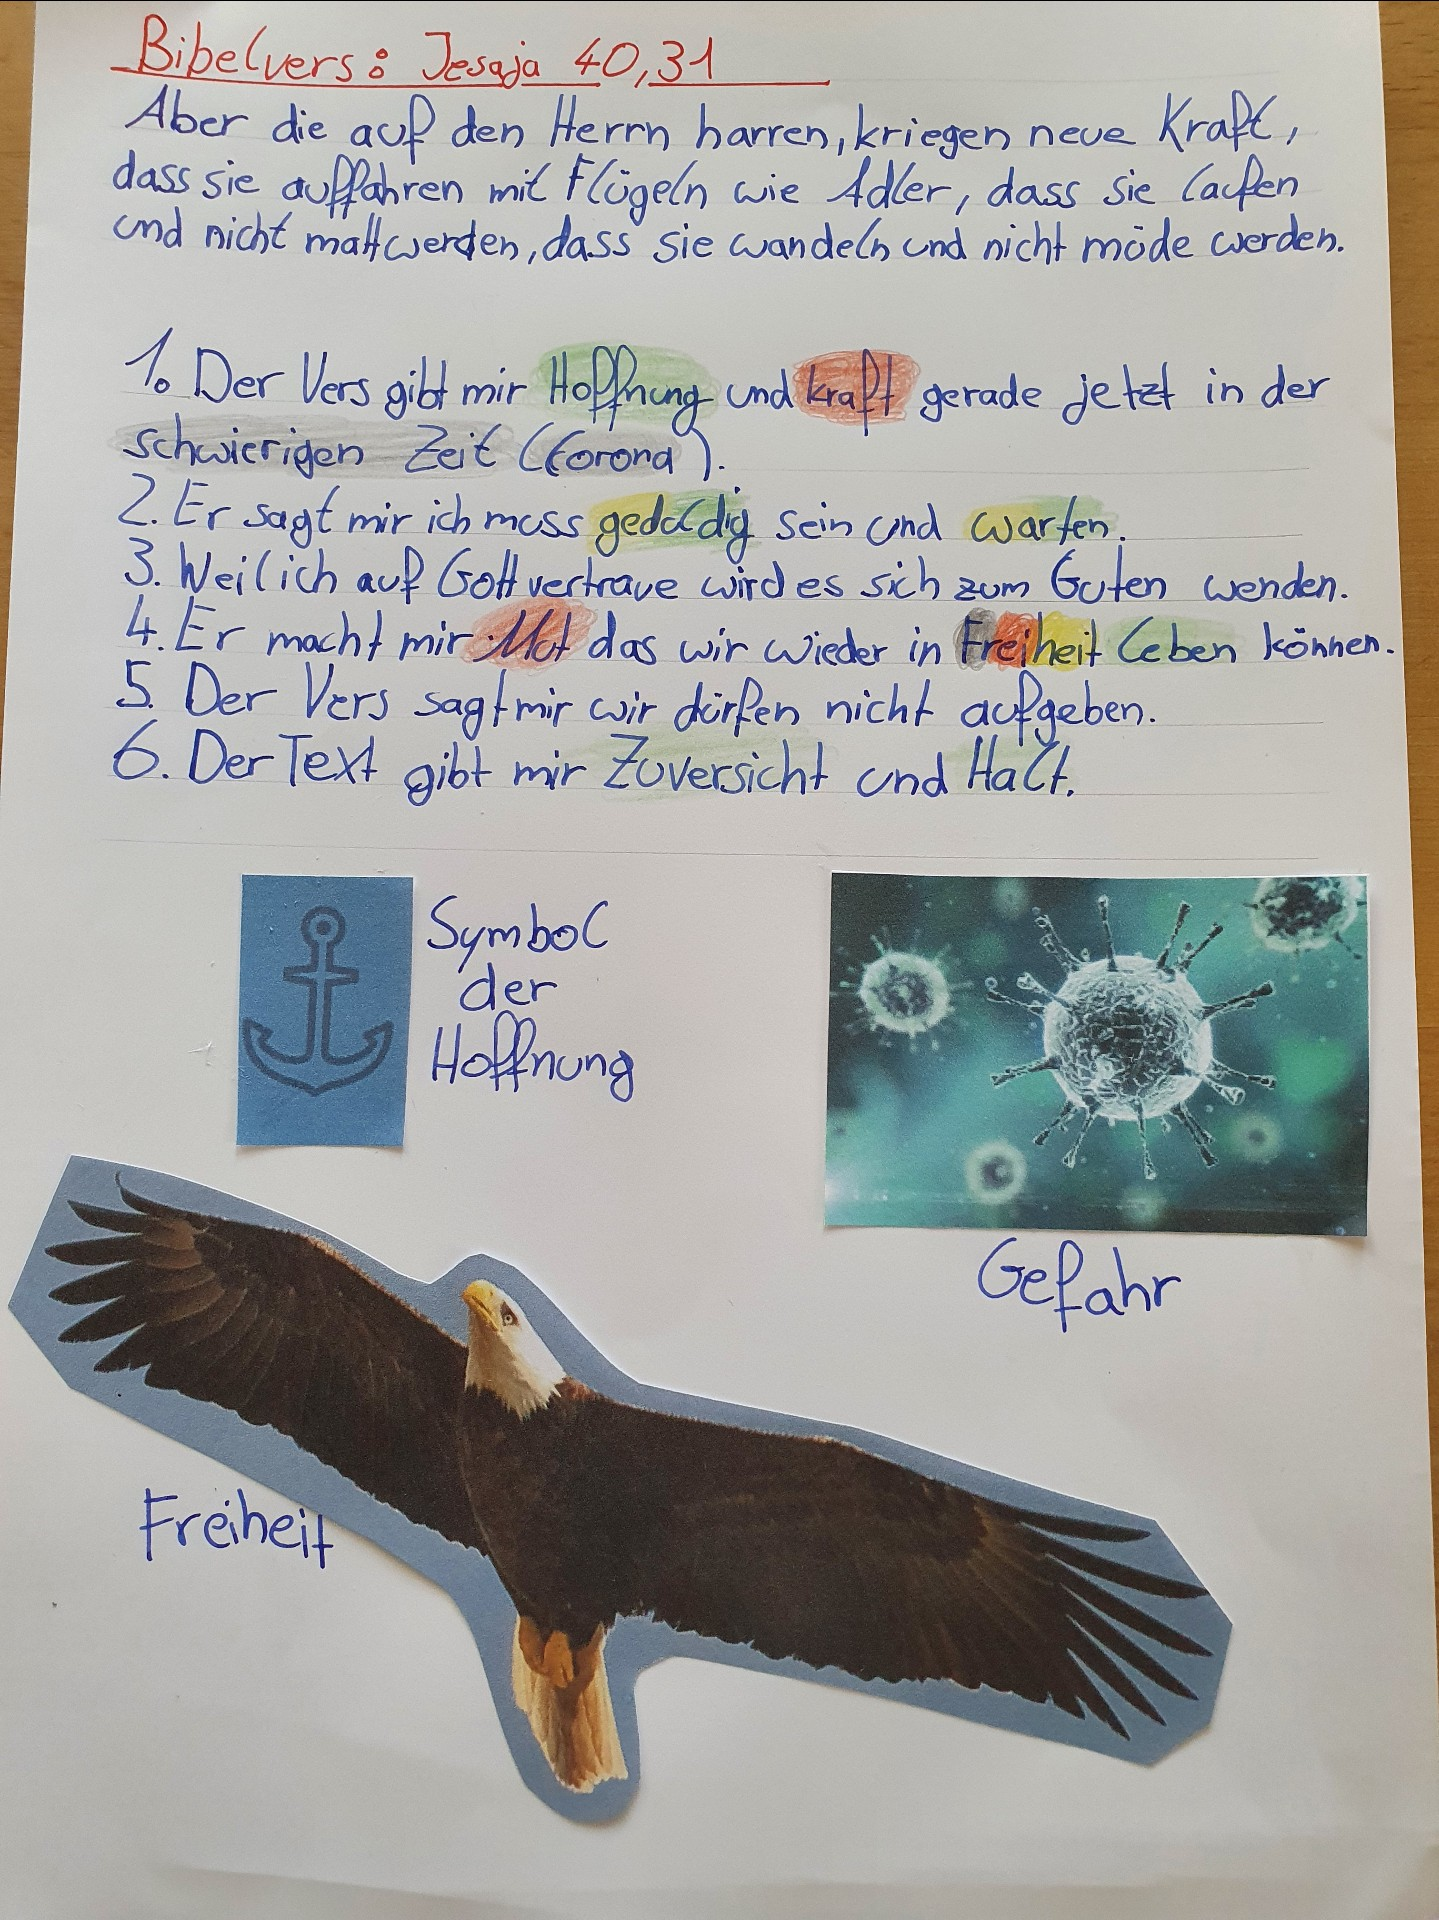 Bibelvers: Jesaja 40,31
Aber die auf den Herrn harren, kriegen neue Kraft,
dass sie auffahren mit Flügeln wie Adler, dass sie laufen
und nicht matt werden, dass sie wandeln und nicht müde werden.
1. Der Vers gibt mir Hoffnung und kraft gerade jetzt in der
schwierigen Zeit (Corona).
2. Er sagt mir ich muss geduldig sein und warten.
3. Weil ich auf Gott vertraue wird es sich zum Guten wenden.
4. Er macht mir Mut das wir wieder in Freiheit leben können.
5. Der Vers sagt mir wir dürfen nicht aufgeben.
6. Der Text gibt mir Zuversicht und Halt.
Symbol
der
Hoffnung
Gefahr
Freiheit